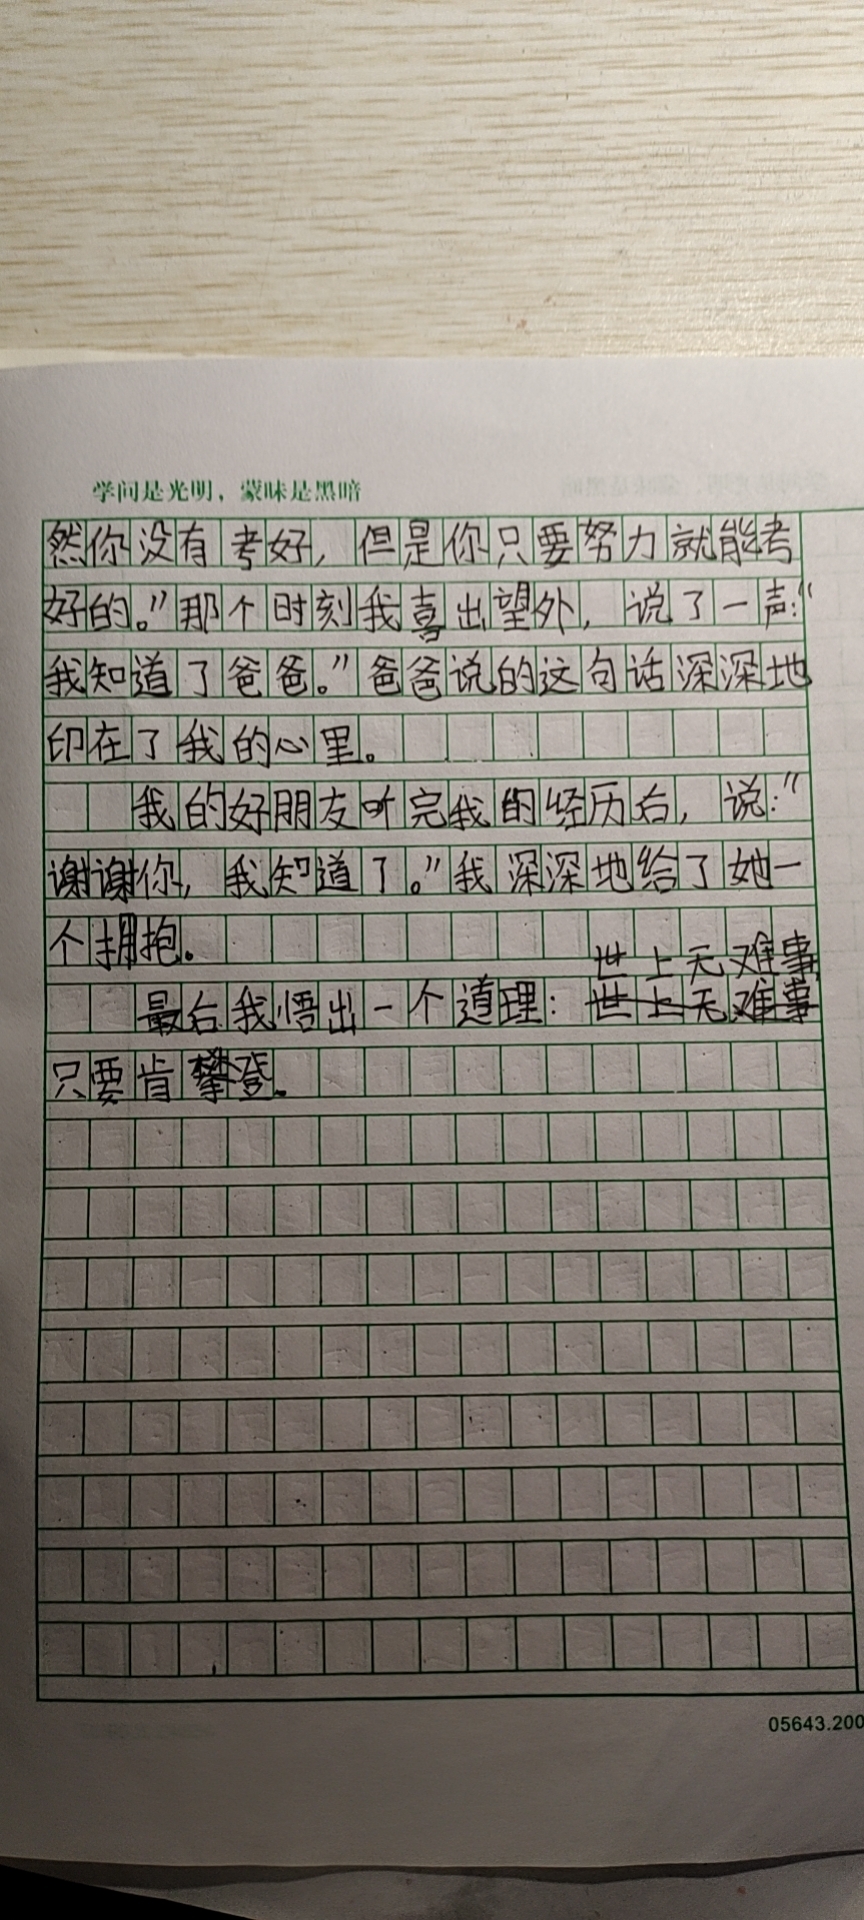 学问是光明，蒙昧是黑暗
然你没有考好，但是你只要努力就能考
好的。”那个时刻我喜出望外，说了一声：“
我知道了爸爸。”爸爸说的这句话深深地
印在了我的心里。
我的好朋友听完我的经历后，说：“
谢谢你，我知道了。”我深深地给了她一
个拥抱。
世上无难事，
最后我悟出一个道理：世上无难事
只要肯攀登。
05643.200